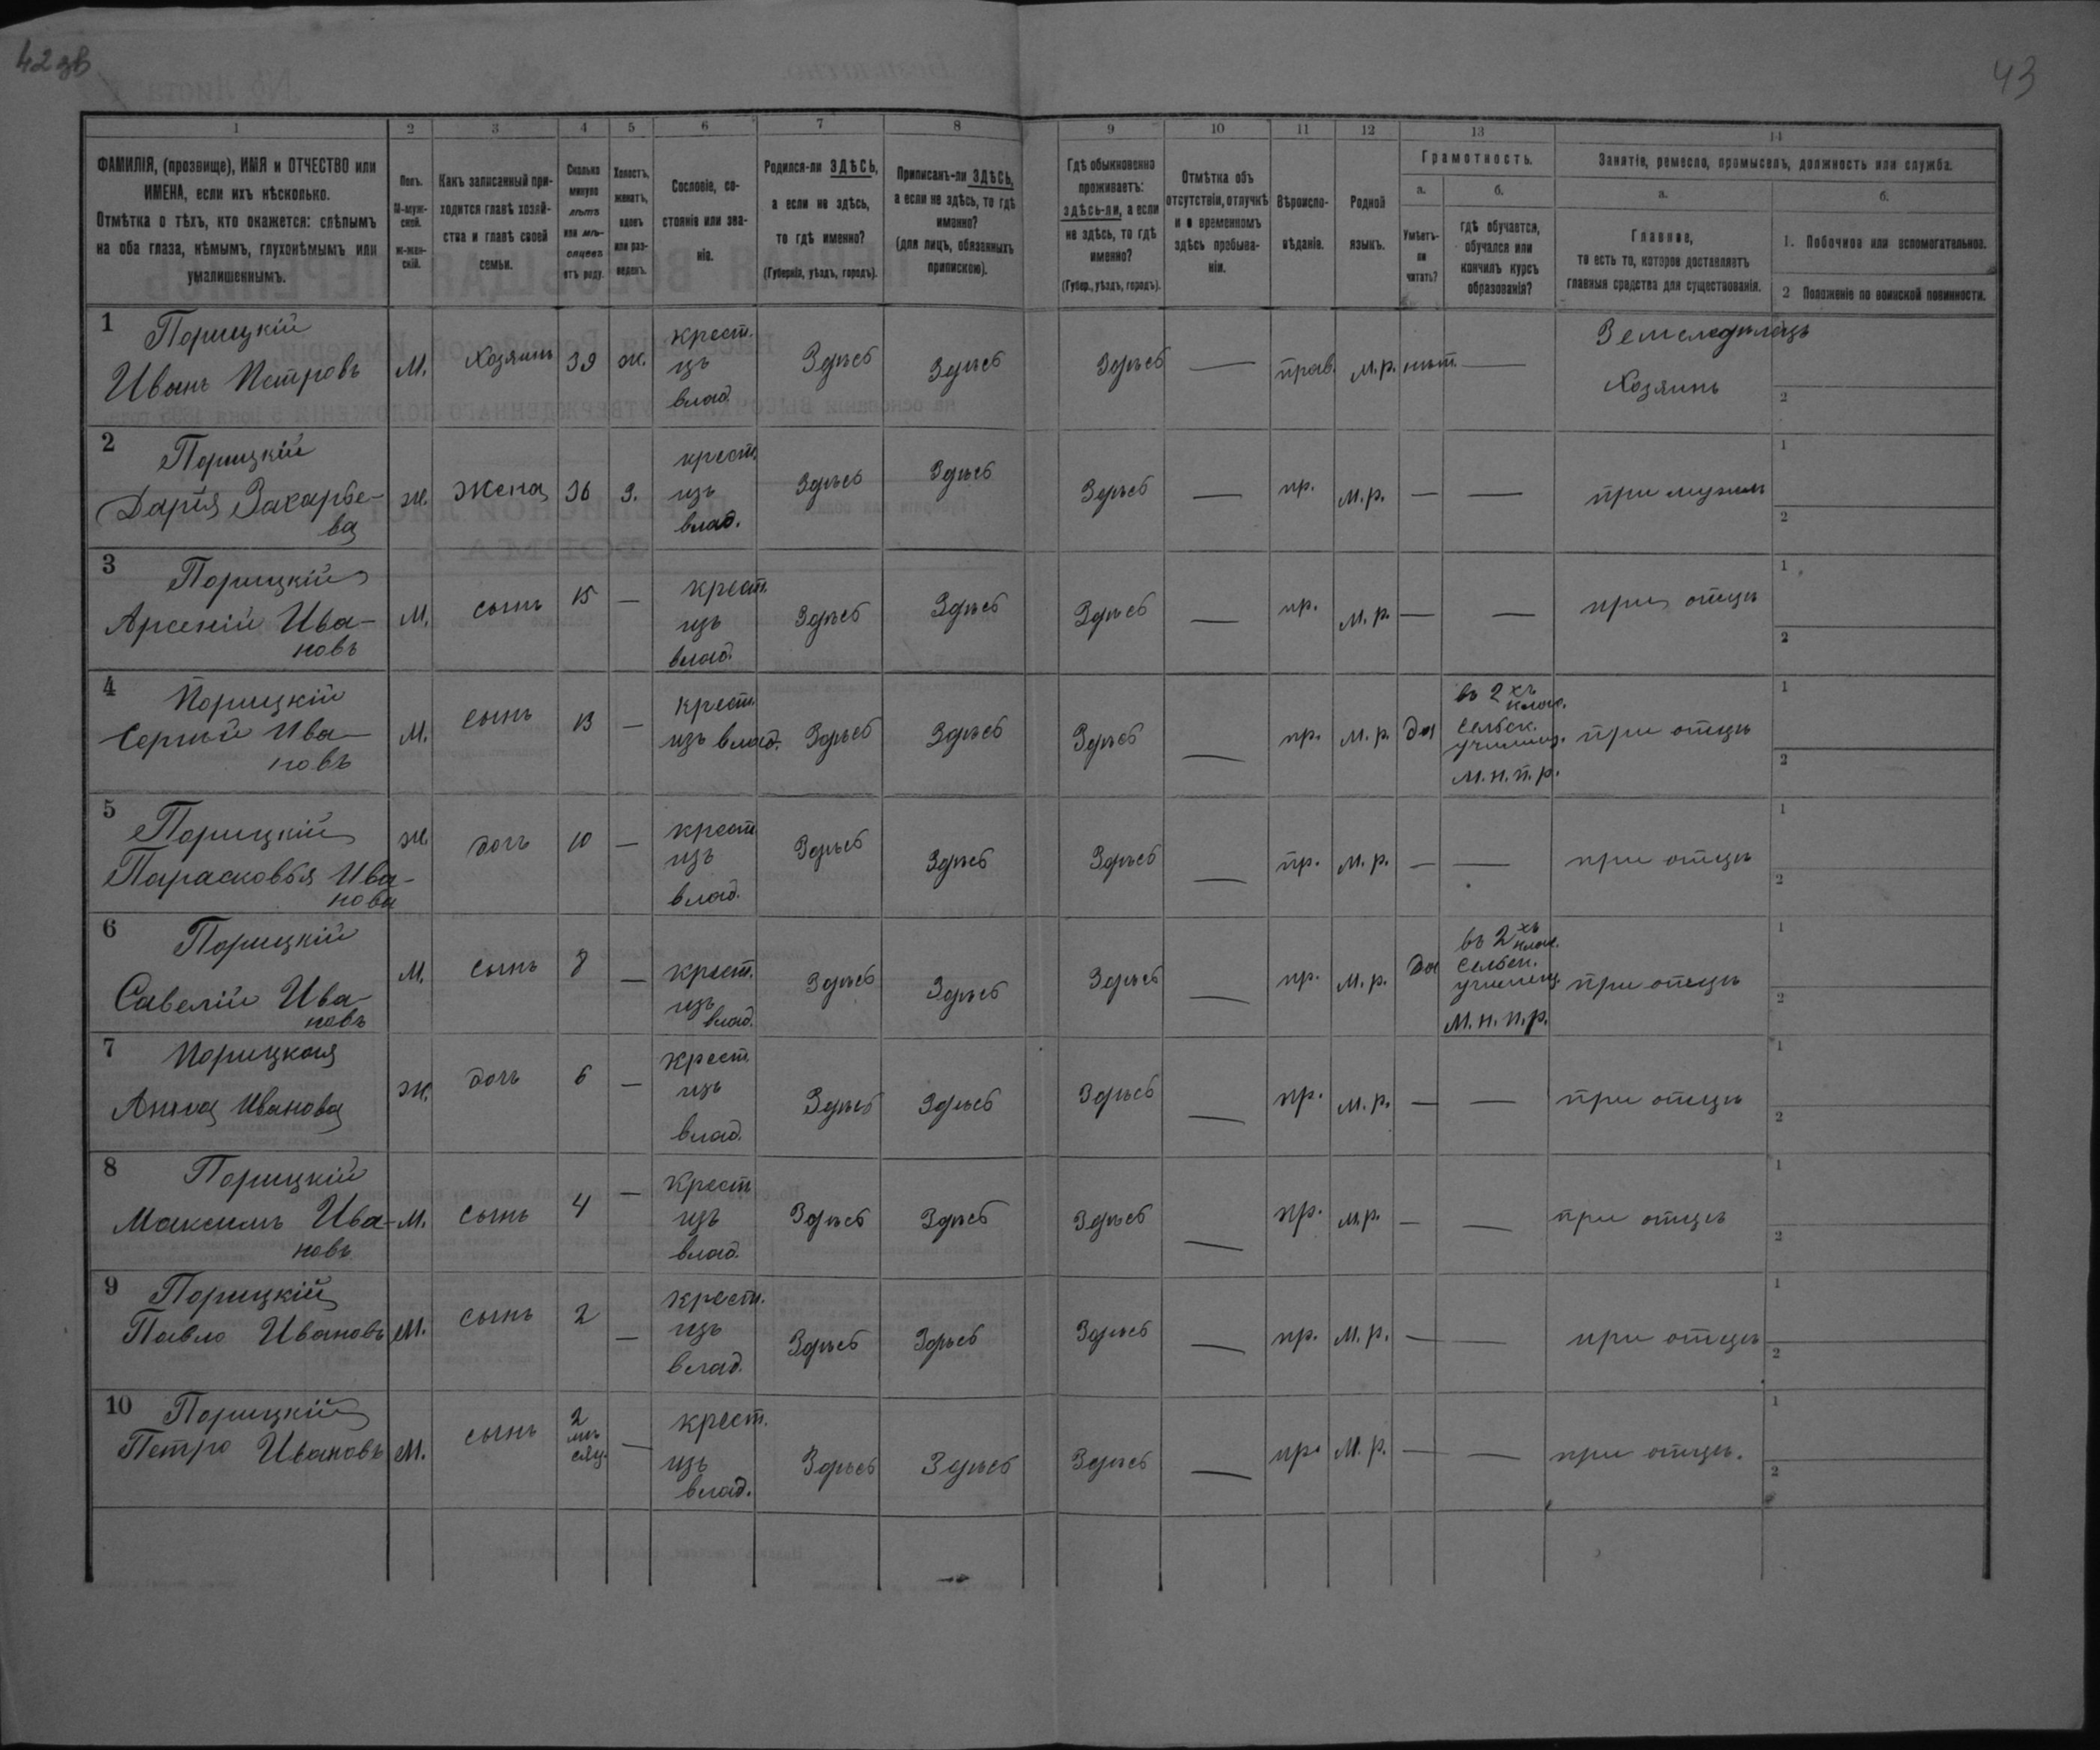 42 зв
43
1 2 3 4 5 6 7 8 9 10 11 12 13 14
ФАМИЛІЯ, (прозвище), ИМЯ и ОТЧЕСТВО или
ИМЕНА, если ихъ нѣсколько.
Отмѣтка о тѣхъ, кто окажется: слѣпымъ
на оба глаза, нѣмымъ, глухонѣмымъ или
умалишеннымъ.
Полъ.
М-муж-
ской.
ж-жен-
скій.
Какъ записанный при-
ходится главѣ хозяй-
ства и главѣ своей
семьи.
Сколько
минуло
лѣтъ
или мѣ-
сяцевъ
отъ роду.
Холостъ,
женатъ,
вдовъ
или раз-
веденъ.
Сословіе, со-
стояніе или зва-
ніе.
Родился-ли ЗДѢСЬ,
а если не здѣсь,
то гдѣ именно?
(Губернія, уѣздъ, городъ).
Приписанъ-ли ЗДѢСЬ,
а если не здѣсь, то гдѣ
именно?
(для лицъ, обязанныхъ
припискою).
Гдѣ обыкновенно
проживаетъ:
здѣсь-ли, а если
не здѣсь, то гдѣ
именно?
(Губер., уѣздъ, городъ).
Отмѣтка объ
отсутствіи, отлучкѣ
и о временномъ
здѣсь пребыва-
ніи.
Вѣроиспо-
вѣданіе.
Родной
языкъ.
Грамотность.
а.
Умѣетъ-
ли
читать?
б.
гдѣ обучается,
обучался или
кончилъ курсъ
образованія?
Занятіе, ремесло, промыселъ, должность или служба.
а.
Главное,
то есть то, которое доставляетъ
главныя средства для существованія.
б.
1. Побочное или вспомогательное.
2 Положеніе по воинской повинности.
1 Порицкій
Иванъ Петровъ
М. Хозяинъ 39 ж.
крест.
изъ
влад.
Здѣсь Здѣсь Здѣсь — прав. м.р. нѣт. —
Земледѣлецъ
Хозяинъ
2
2 Порицкій
Дарія Захарье-
ва
ж. жена 36 з.
крест.
изъ
влад.
Здѣсь Здѣсь Здѣсь — пр. м.р. — — при мужѣ
1
2
3 Порицкій
Арсеній Ива-
новъ
М. сынъ 15 —
крест.
изъ
влад.
Здѣсь Здѣсь Здѣсь — пр. м.р. — — при отцѣ
1
2
4 Порицкій
Сергѣй Ива-
новъ
М. сынъ 13 —
крест.
изъ влад.
Здѣсь Здѣсь Здѣсь — пр. м.р. да
въ 2 хъ
клас.
сельск.
училищ.
м.н.п.р.
при отцѣ
1
2
5 Порицкій
Парасковья Ива-
нова
ж. дочь 10 —
крест.
изъ
влад.
Здѣсь Здѣсь Здѣсь — пр. м.р. — — при отцѣ
1
2
6 Порицкій
Савелій Ива-
новъ
М. сынъ 8 —
крест.
изъ
влад.
Здѣсь Здѣсь Здѣсь — пр. м.р. да
въ 2 хъ
клас.
сельск.
училищ.
м.н.п.р.
при отцѣ
1
2
7 Порицкая
Анна Иванова
ж. дочь 6 —
крест.
изъ
влад.
Здѣсь Здѣсь Здѣсь — пр. м.р. — — при отцѣ
1
2
8 Порицкій
Максимъ Ива-
новъ
М. сынъ 4 —
крест
изъ
влад.
Здѣсь Здѣсь Здѣсь — пр. м.р. — — при отцѣ
1
2
9 Порицкій
Павло Ивановъ
М. сынъ 2 —
крест.
изъ
влад.
Здѣсь Здѣсь Здѣсь — пр. м.р. — — при отцѣ
1
2
10 Порицкій
Петро Ивановъ
М. сынъ
2
мѣ
сяц.
—
крест.
изъ
влад.
Здѣсь Здѣсь Здѣсь — пр. м.р. — — при отцѣ.
1
2